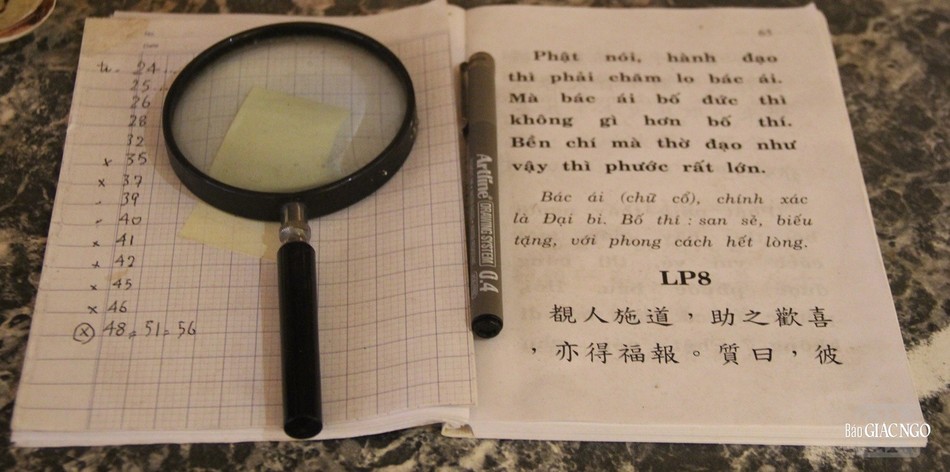 No.
Date
24
25
26
28
32
x 35
x 37
- 39
- 40
x 41
x 42
x 45
x 46
ⓧ 48 = 51 = 56
Artline
DRAWING SYSTEM 0.4
65
Phật nói, hành đạo
thì phải chăm lo bác ái.
Mà bác ái bố đức thì
không gì hơn bố thí.
Bền chí mà thờ đạo như
vậy thì phước rất lớn.
Bác ái (chữ cổ), chính xác
là Đại bi. Bố thí : san sẻ, biếu
tặng, với phong cách hết lòng.
LP8
覩人施道，助之歡喜
，亦得福報。質曰，彼
Báo GIÁC NGỘ